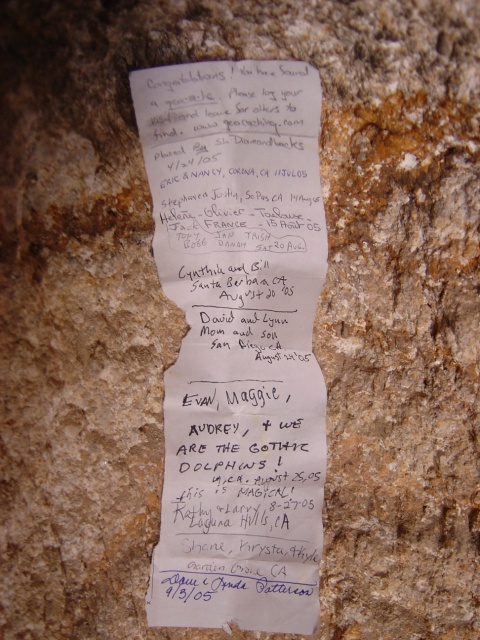 Congratulations! You have found
a geocache. Please log your
and leave for others to
find. www.geocaching.com
Placed By SD Diamondbacks
4/21/05
ERIC & NANCY, COVINA, CA 11JUL05
Stephanie, Justin, So Pas CA 14 Aug 05
Helene - Olivier - Toulouse -
Jack FRANCE - 15 Août 05
TONY JAN TRISH
BOBB DANNY SAT 20 AUG.
Cynthia and Bill
Santa Barbara CA
August 20 '05
David and Lynn
Mom and Son
San Diego, CA
August 21 '05
EVAN, Maggie,
AUDREY, + WE
ARE THE GOTHIC
DOLPHINS!
CA. AUGUST 25, 05
this is MAGICAL!
Kathy + Larry, 8-27-05
Laguna Hills, CA
Shane, Krysta, + Kyle
Garden Grove CA
Dave & Linda Patterson
9/3/05